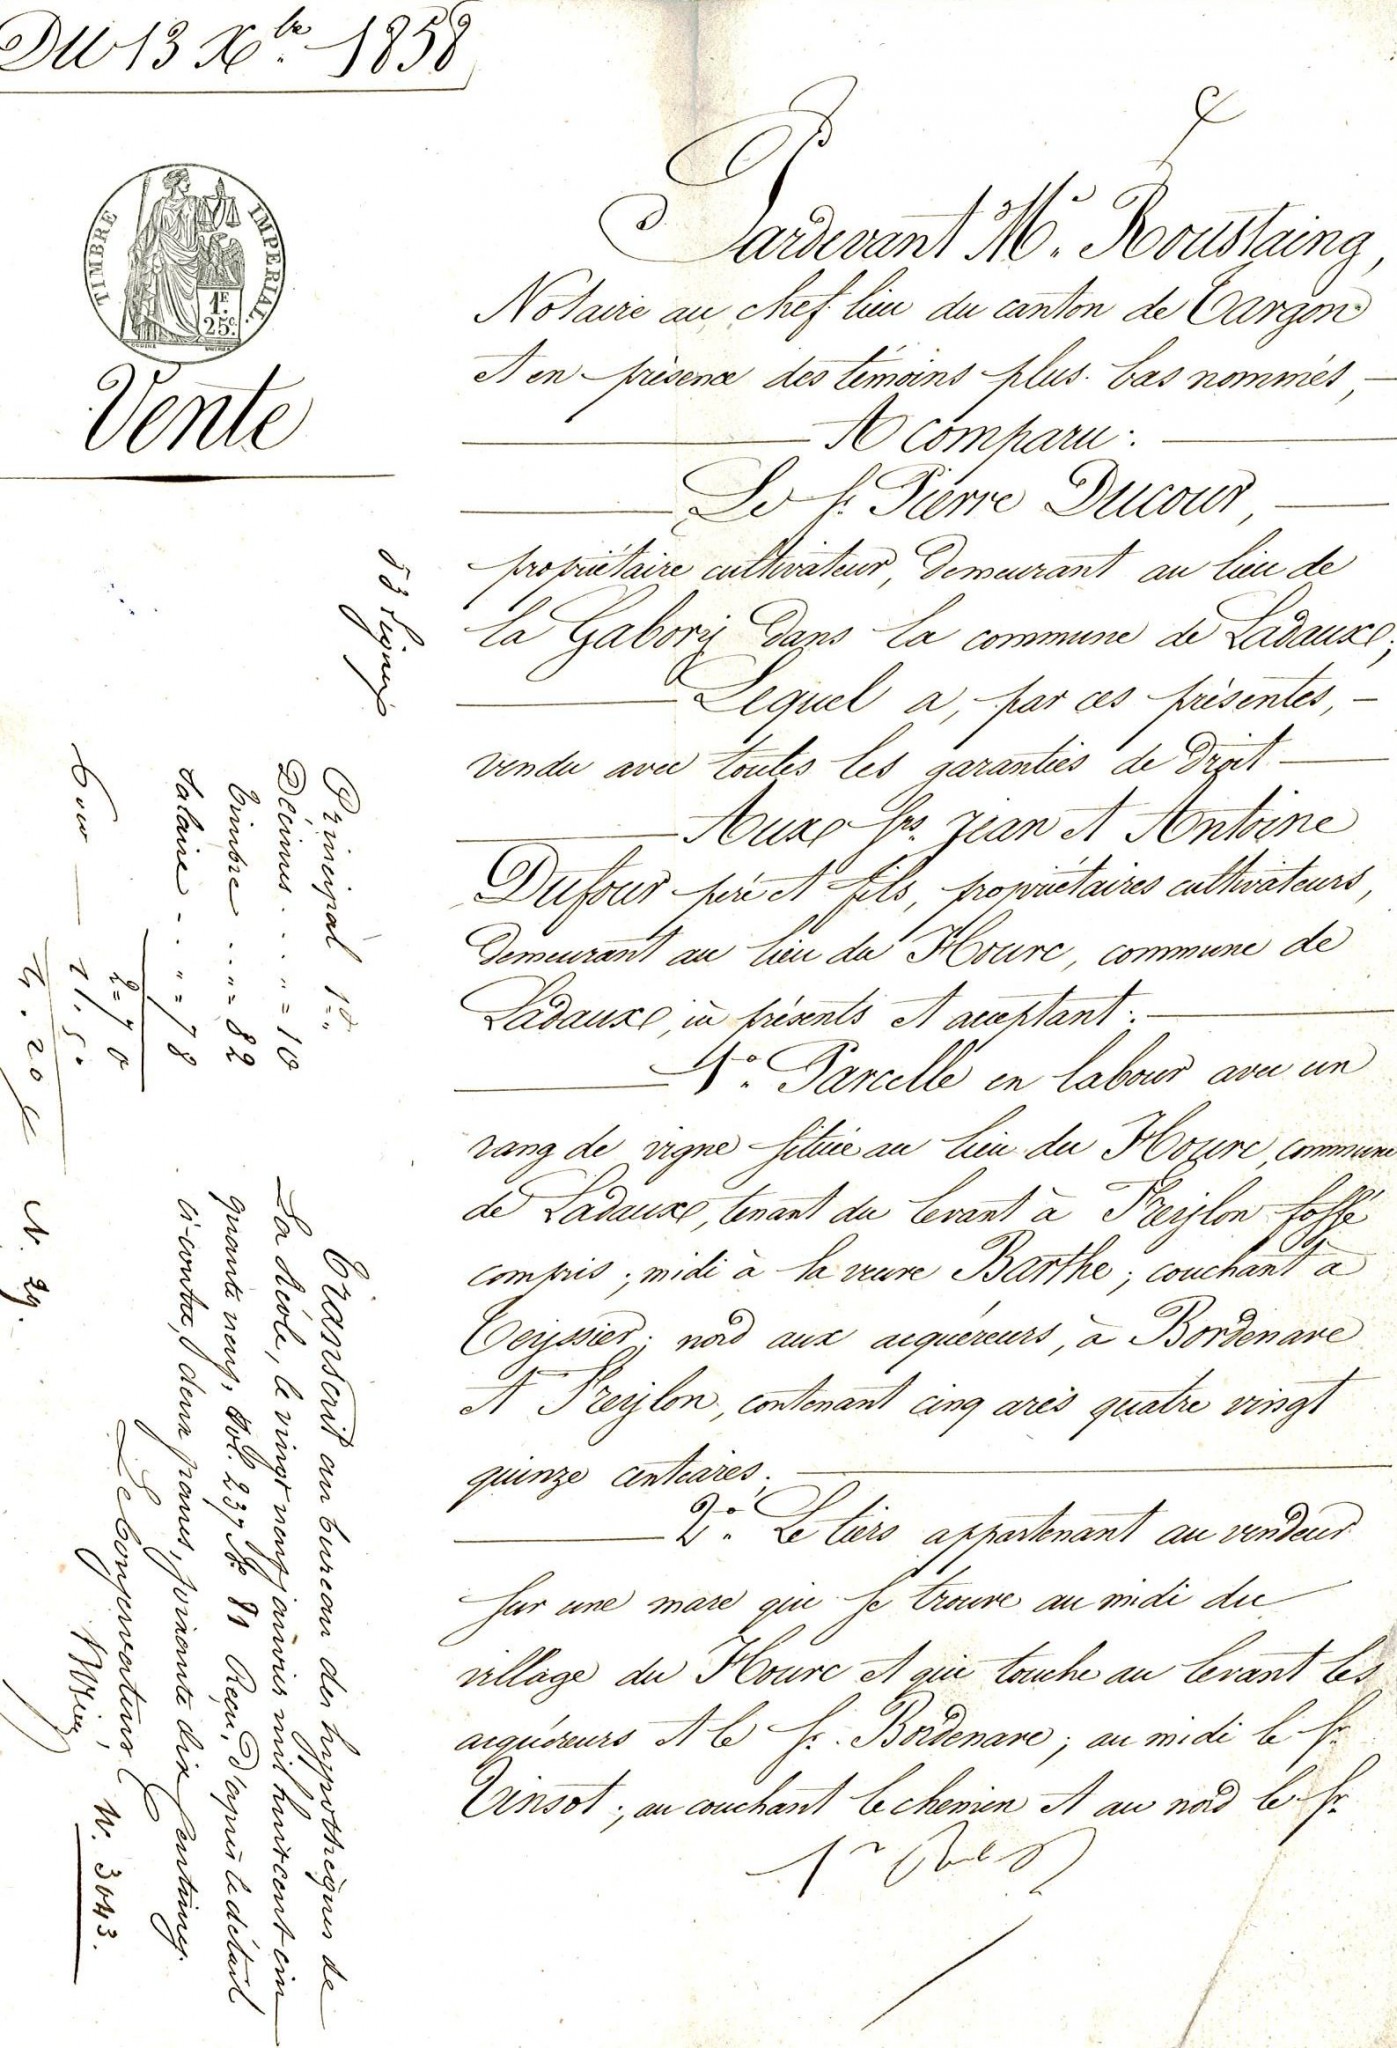 DU 13 Xbre 1858
TIMBRE IMPERIAL.
1F.
25c.
Vente
Pardevant Me. Roustaing,
Notaire au chef lieu du canton de Targon
et en présence des témoins plus bas nommés,
A comparu:
Le sr. Pierre Ducour,
propriétaire cultivateur, demeurant au lieu de
la Gabory dans la commune de Ladaux;
Lequel a, par ces présentes,
vendu avec toutes les garanties de droit
Aux srs. Jean et Antoine
Dufour père et fils, propriétaires cultivateurs,
demeurant au lieu du Hourc, commune de
Ladaux, ici présents et acceptant:
1°. Parcelle en labour avec un
rang de vigne située au lieu du Hourc, commune
de Ladaux, tenant du levant à Freylon fossé
compris; midi à la veuve Barthe; couchant à
Teyssier; nord aux acquéreurs, à Bordenave
et Freylon, contenant cinq ares quatre vingt
quinze centiares.
2°. Le tiers appartenant au vendeur
sur une mare qui se trouve au midi du
village du Hourc et qui touche au levant les
acquéreurs et le sr. Bordenave; au midi le sr
Tinsot; au couchant le chemin et au nord le sr
53
Principal 1=„
Décimes . . „=10
Timbre . . „=82
Salaire . . „=78
2=70
1.50
4.20
Transcrit au bureau des hypothèques de
La Réole, le vingt neuf janvier mil huit cent cin
quante neuf, vol. 237 N° 81 Reçu, d'après le détail
ci-contre, deux francs, soixante dix centimes.
Le Conservateur
N. 29.
N. 3043.